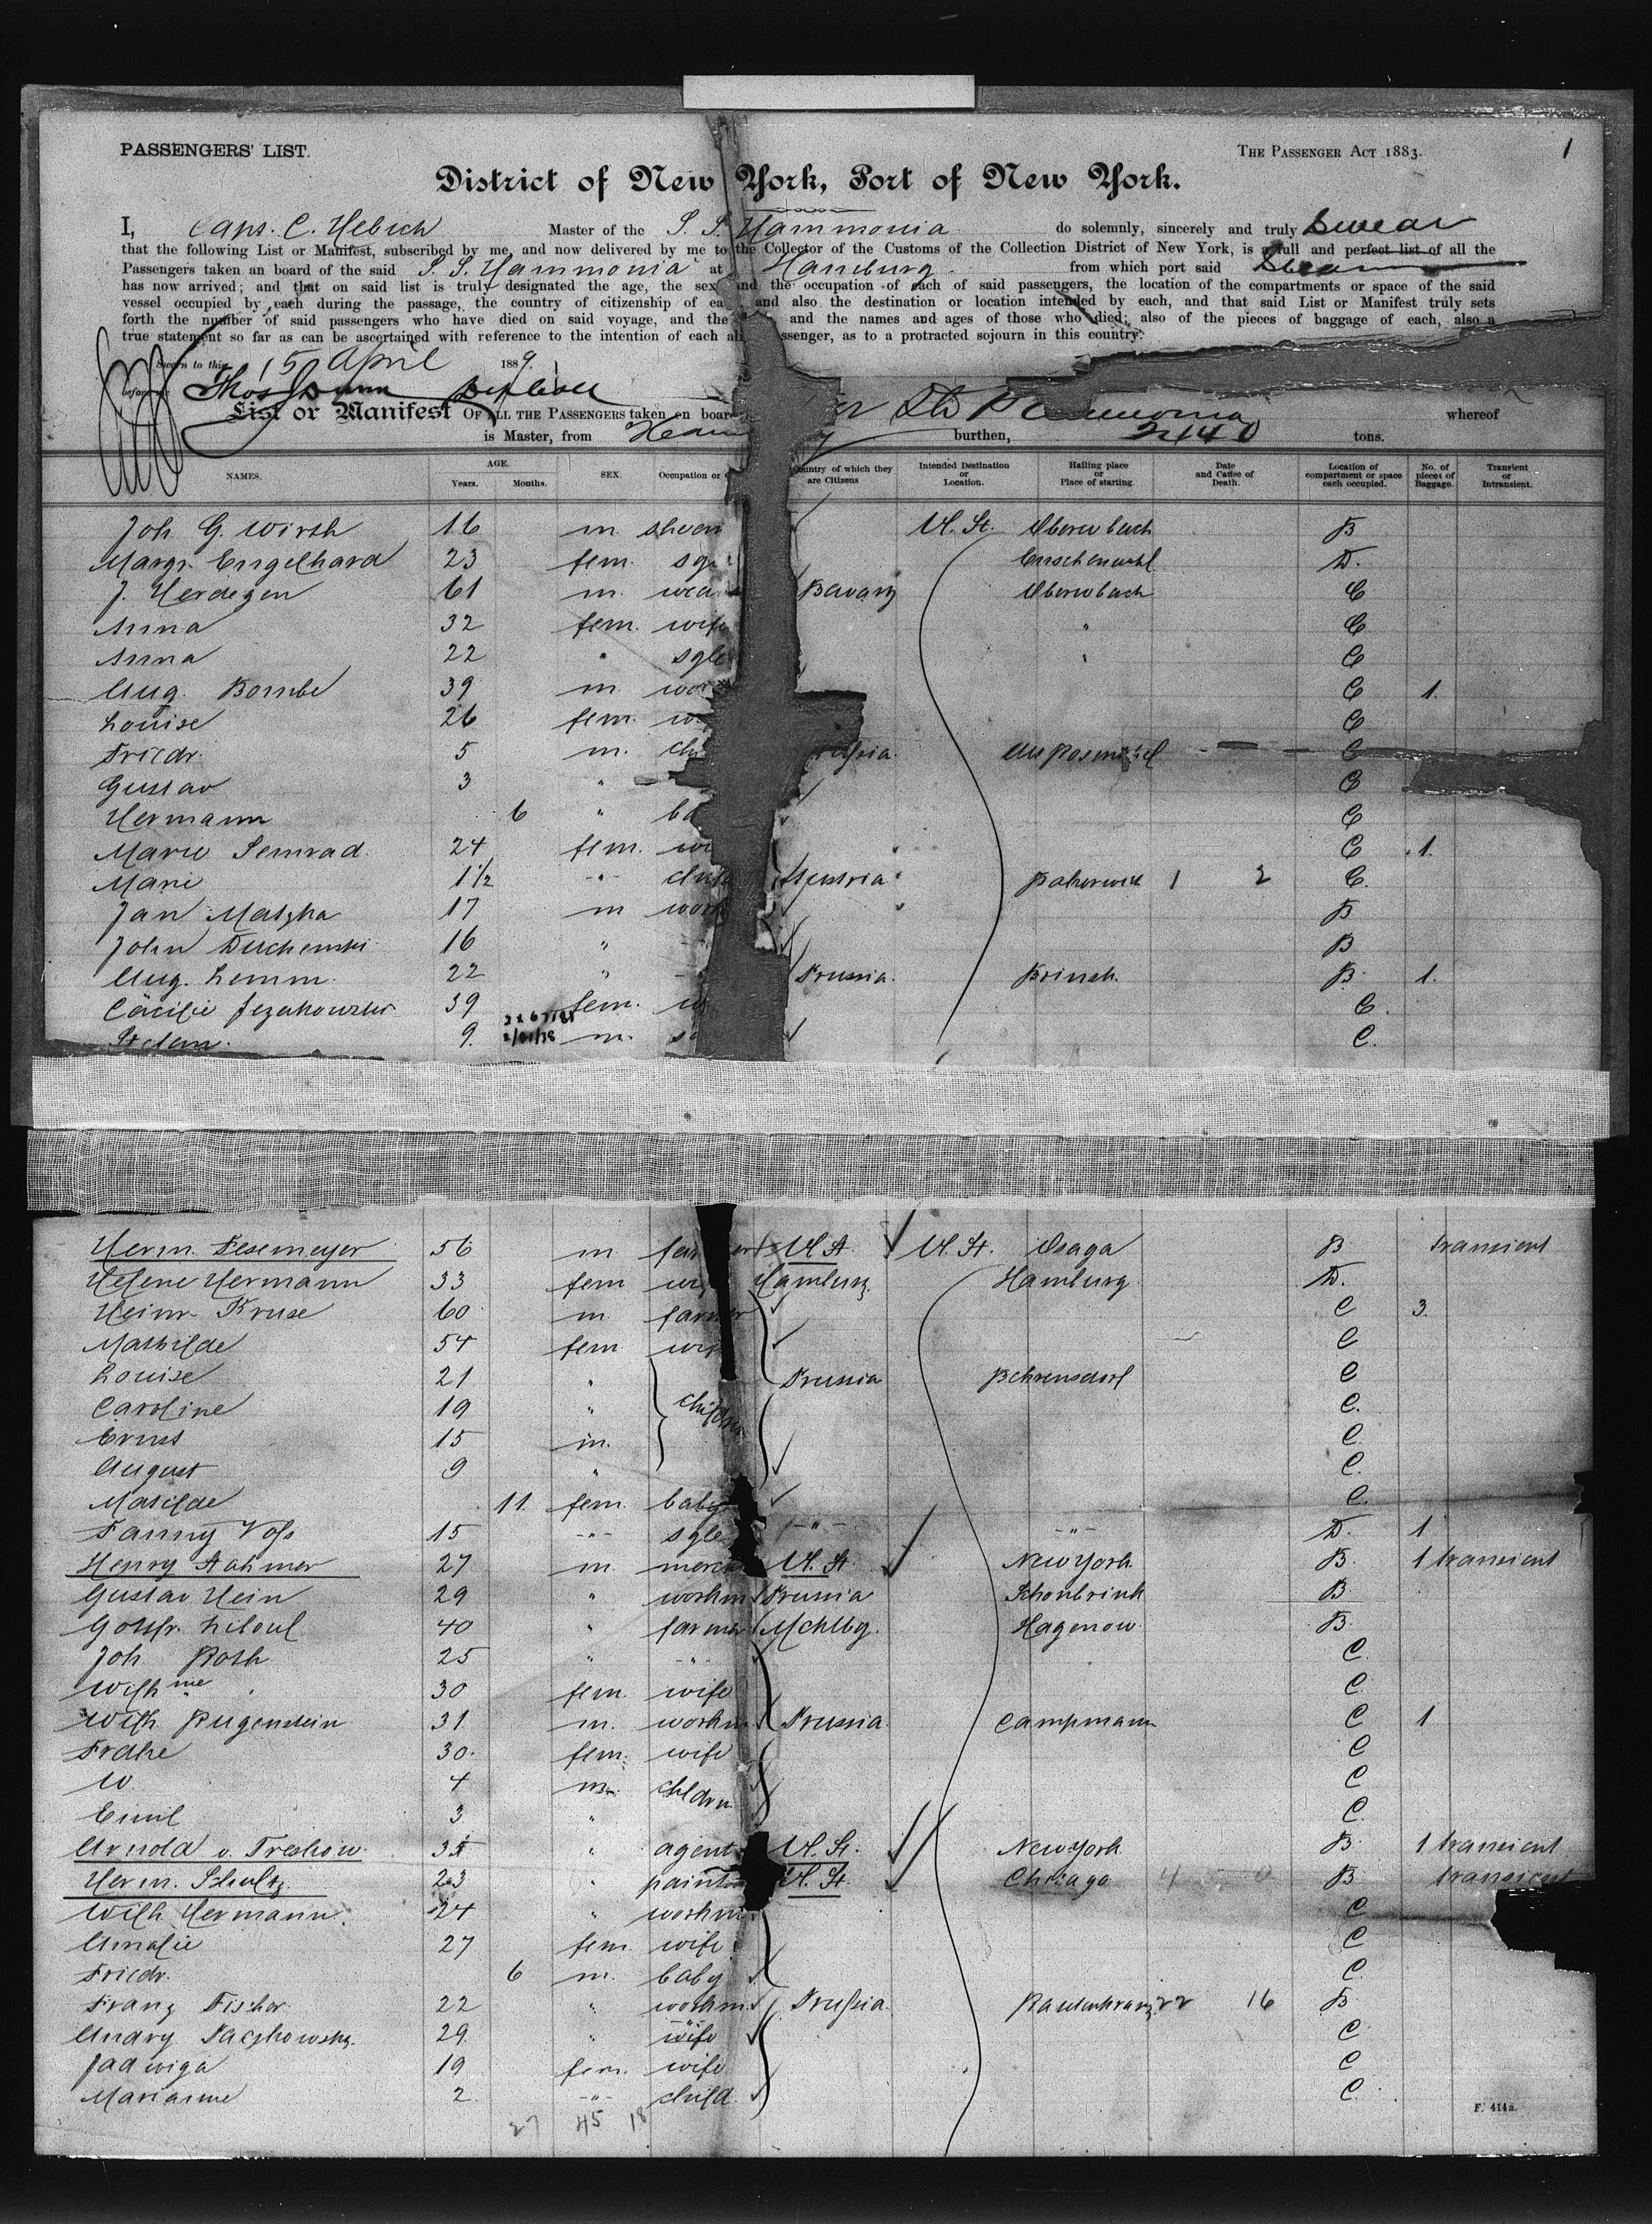 PASSENGERS' LIST.
THE PASSENGER ACT 1883.
1
District of New York, Port of New York.
I, Capt. C. Hebich Master of the S. S. Hammonia do solemnly, sincerely and truly swear
that the following List or Manifest, subscribed by me, and now delivered by me to the Collector of the Customs of the Collection District of New York, is a full and perfect list of all the
Passengers taken on board of the said S. S. Hammonia at Hamburg from which port said Steam
has now arrived; and that on said list is truly designated the age, the sex and the occupation of each of said passengers, the location of the compartments or space of the said
vessel occupied by each during the passage, the country of citizenship of ea and also the destination or location intended by each, and that said List or Manifest truly sets
forth the number of said passengers who have died on said voyage, and the and the names and ages of those who died; also of the pieces of baggage of each, also a
true statement so far as can be ascertained with reference to the intention of each ali ssenger, as to a protracted sojourn in this country.
Sworn to this 15 April 1889.
before Thos Dunn
List or Manifest OF ALL THE PASSENGERS taken on boar whereof
is Master, from burthen, 2140 tons.
NAMES. AGE. Years. Months. SEX. Occupation or Country of which they are Citizens Intended Destination or Location. Hailing place or Place of starting. Date and Cause of Death. Location of compartment or space each occupied. No. of pieces of Baggage. Transient or Intransient.
Joh G. Wirth 16 m U. St. B
Margr. Engelhard 23 fem. D.
J. Herdegen 61 m. Bavary C
Anna 32 fem. wife " C
Anna 22 " sgle C
Aug. Bombe 39 m wor C 1.
Louise 26 fem. w C
Friedr. 5 m. chi C
Gustav 3 " C
Hermann 6 " ba C
Marie Semrad 24 fem. wi C 1.
Marie 1½ -"- child Austria 1 2 C.
Jan Matzka 17 m work B
John Duchemski 16 " B
Aug. Lemm 22 " Prussia. B 1.
Cäcilie 39 fem. w C.
9. m. C.
Herm. Pesemeyer 56 m U. St. U. St. Osaga B transient
Helene Hermann 33 fem Hamburg. Hamburg. D.
Heinr. Kruse 60 m. farmer C 3.
Mathilde 54 fem wife C
Louise 21 " Prussia Behrensdorf C
Caroline 19 " children C.
Ernst 15 m. C.
August 9 " C.
Matilde 11. fem. baby C.
Fanny Voss 15 -"- sgle -"- -"- D. 1
Henry Aahmer 27 m. merch U. St. New York B. 1 transient
Gustav Hein 29 " workm Prussia Schonbrink B
Gottfr. 40 " farmer Mcklbg. Hagenow B.
Joh Roth 25 " -"- C.
Wilh me 30 fem. wife C.
Wilh. Rugenstein 31 m. workm Prussia. Campmann C 1
Fradke 30. fem. wife C
W. 4 m. chldrn C
Emil 3 " C.
Arnold v. Treskow. 35 " agent U. St. New York B. 1 transient
Herm. Schultz. 23 " paint U. St. Chicago B transient
Wilh. Hermann. 24 " workm C
Amalie 27 fem. wife C
Friedr. 6 m. baby C.
Franz Fischer 22 " workm Prussia 22 16 B
29. " C
Jadwiga 19 fem. wife C
Marianne 2. -"- child. C.
27 45 18
F. 414a.